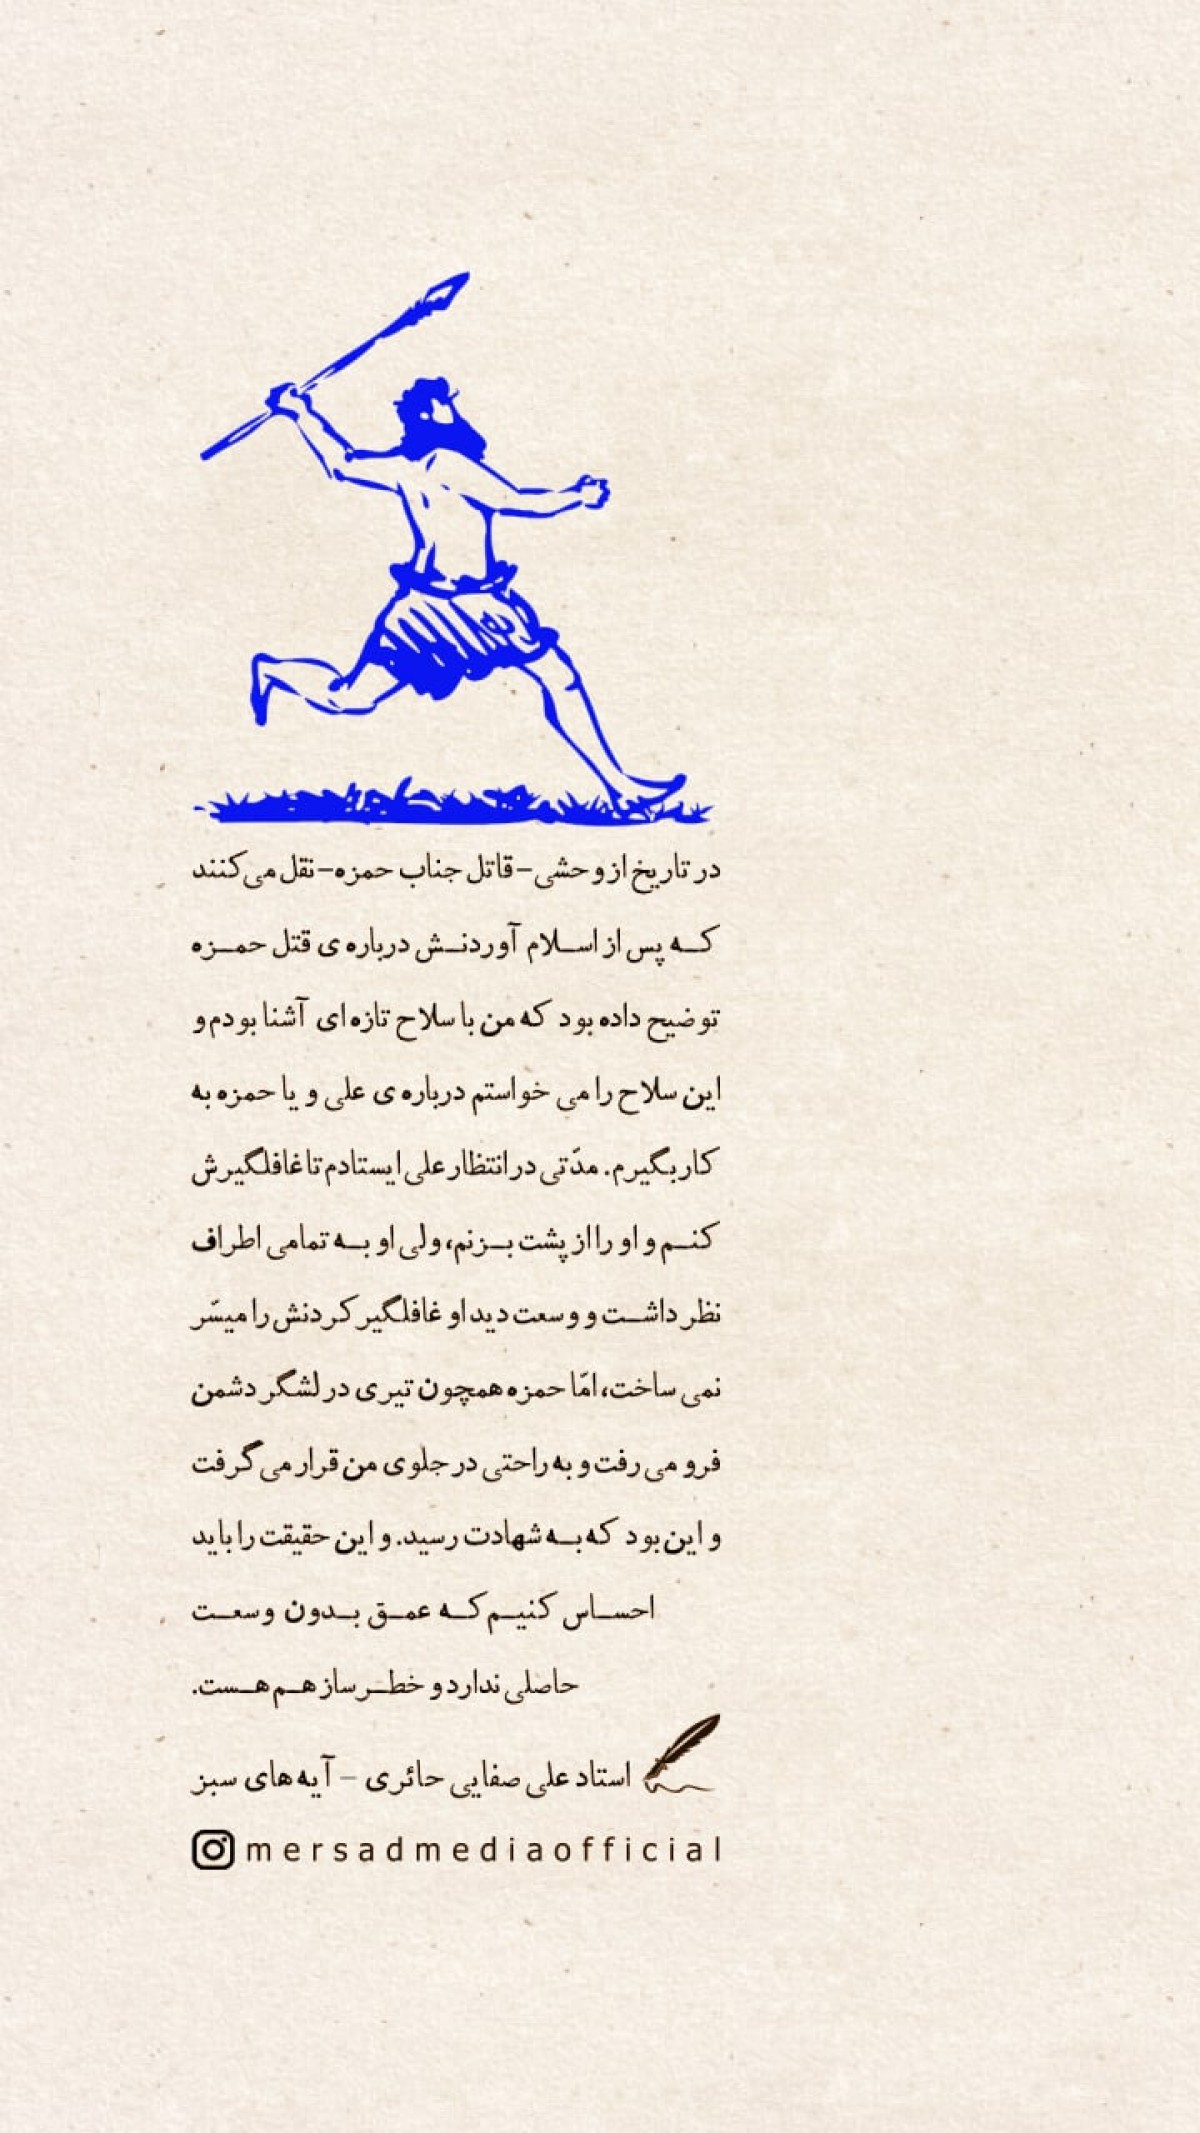 در تاریخ از وحشی-قاتل جناب حمزه-نقل می‌کنند
که پس از اسلام آوردنش درباره ی قتل حمزه
توضیح داده بود که من با سلاح تازه ای آشنا بودم و
این سلاح را می خواستم درباره ی علی و یا حمزه به
کار بگیرم. مدّتی در انتظار علی ایستادم تا غافلگیرش
کنم و او را از پشت بزنم، ولی او به تمامی اطراف
نظر داشت و وسعت دید او غافلگیر کردنش را میسّر
نمی ساخت، امّا حمزه همچون تیری در لشگر دشمن
فرو می رفت و به راحتی در جلوی من قرار می گرفت
و این بود که به شهادت رسید. و این حقیقت را باید
احساس کنیم که عمق بدون وسعت
حاصلی ندارد و خطر ساز هم هست.
استاد علی صفایی حائری – آیه های سبز
mersadmediaofficial